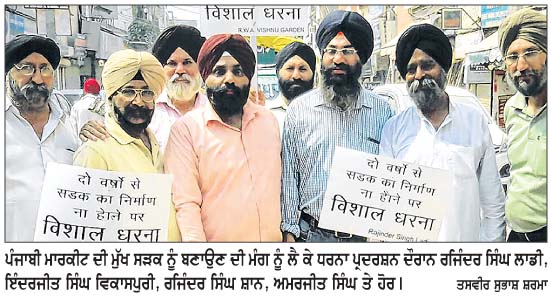 विशाल धरना
R.W.A. VISHNU GARDEN
दो वर्षो से
सडक का निर्माण
ना होने पर
विशाल धरना
दो वर्षो से
सडक का निर्माण
ना होने पर
विशाल धरना
Rajinder Singh Ladi
ਪੰਜਾਬੀ ਮਾਰਕੀਟ ਦੀ ਮੁੱਖ ਸੜਕ ਨੂੰ ਬਣਾਉਣ ਦੀ ਮੰਗ ਨੂੰ ਲੈ ਕੇ ਧਰਨਾ ਪ੍ਰਦਰਸ਼ਨ ਦੌਰਾਨ ਰਜਿੰਦਰ ਸਿੰਘ ਲਾਡੀ,
ਇੰਦਰਜੀਤ ਸਿੰਘ ਵਿਕਾਸਪੁਰੀ, ਰਜਿੰਦਰ ਸਿੰਘ ਸ਼ਾਨ, ਅਮਰਜੀਤ ਸਿੰਘ ਤੇ ਹੋਰ। ਤਸਵੀਰ ਸੁਭਾਸ਼ ਸ਼ਰਮਾ